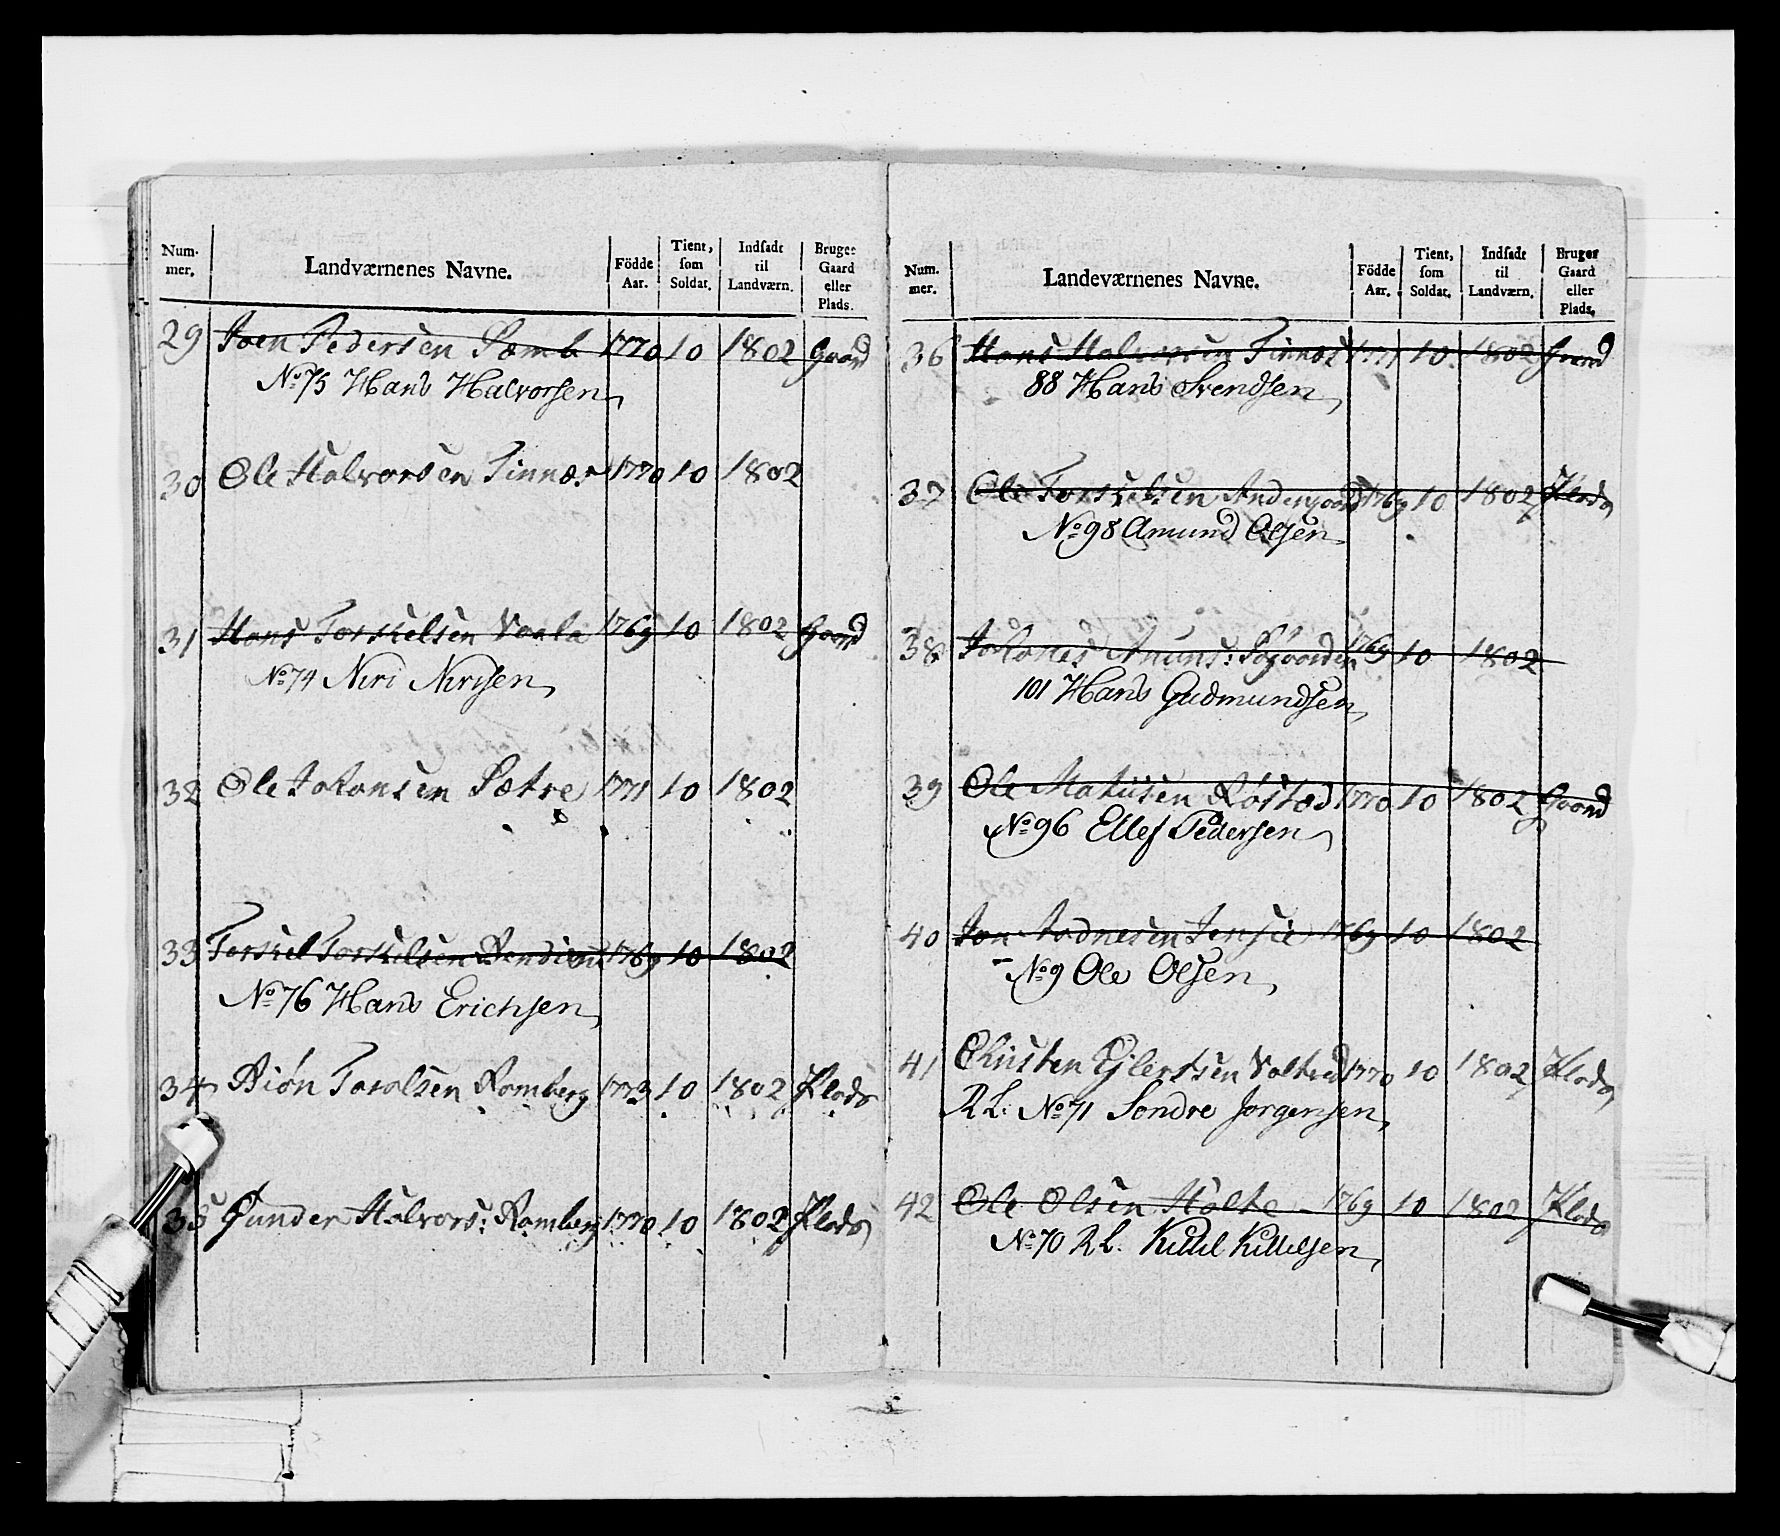 Num-mer. Landværnenes Navne. Födde Aar. Tient, som Soldat. Indsadt til Landværn. Bruger Gaard eller Plads.
29 Joen Pedersen Sæmb 1770 10 1802 Gaard
No 75 Hans Halvorsen
30 Ole Halvorsen Tinnæs 1770 10 1802
31 Hans Torskelsen Vaala 1769 10 1802 Gaard
No 74 Niri Nirisen
32 Ole Johansen Sætre 1771 10 1802
33 Torskel Torskelsen 1769 10 1802
No 76 Hans Erichsen
34 Biön Taralsen Ramberg 1773 10 1802 Plads
35 Gunder Halvors: Ramberg 1770 10 1802 Plads
Num-mer. Landeværnenes Navne. Födde Aar. Tient, som Soldat. Indsadt til Landværn. Bruger Gaard eller Plads.
36 Hans Halvorsen Tinnæs 1771 10 1802 Gaard
88 Hans Svendsen
37 Ole Torskelsen Andergaard 1769 10 1802 Plads
No 98 Amund Olsen
38 Johanes Amuns: 1769 10 1802
101 Hans Gudmundsen
39 Ole Matiisen Röstad 1770 10 1802 Gaard
No 96 Ellef Pedersen
40 Jon 1769 10 1802
No 9 Ole Olsen
41 Christen Ejlertsen 1770 10 1802 Plads
R L: No 71 Sondre Jorgensen
42 Ole Olsen Holte 1769 10 1802 Plads
No 70 R L. Kittil Kittilsen